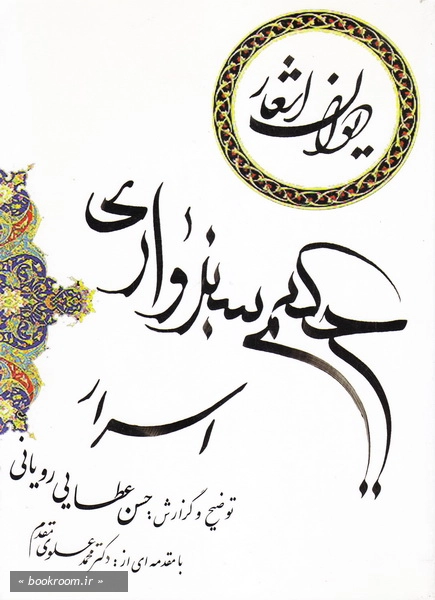 دیوان اشعار
حکیم سبزواری
اسرار
توضیح و گزارش: حسن عطایی رویانی
با مقدمه ای از: دکتر محمد علوی مقدم
« bookroom.ir »